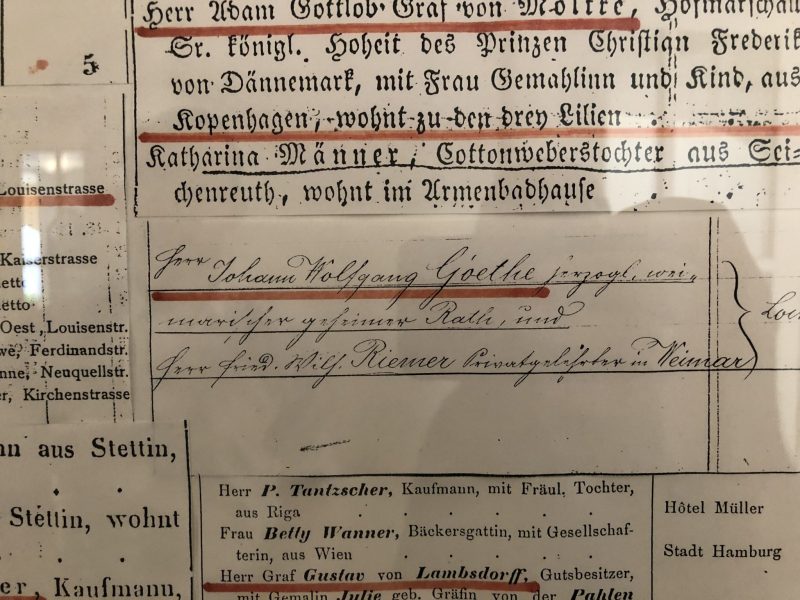 Herr Adam Gottlob Graf von Moltke, Hofmarschall
Sr. königl. Hoheit des Prinzen Christian Frederik
von Dännemark, mit Frau Gemahlinn und Kind, aus
Kopenhagen, wohnt zu den drey Lilien
Katharina Männer, Cottonweberstochter aus Sei=
chenreuth, wohnt im Armenbadhause
5
Louisenstrasse
Kaiserstrasse
Oest, Louisenstr.
Ferdinandstr.
Neuquellstr.
Kirchenstrasse
Herr Johann Wolfgang Goethe herzogl. wei-
marischer geheimer Rath, und
Herr Fried. Wilh. Riemer Privatgelehrter in Weimar
aus Stettin,
Stettin, wohnt
Kaufmann,
Herr P. Tantzscher, Kaufmann, mit Fräul. Tochter,
aus Riga
Frau Betty Wanner, Bäckersgattin, mit Gesellschaf-
terin, aus Wien
Herr Graf Gustav von Lambsdorff, Gutsbesitzer,
mit Gemalin Julie geb. Gräfin von der Pahlen
Hôtel Müller
Stadt Hamburg